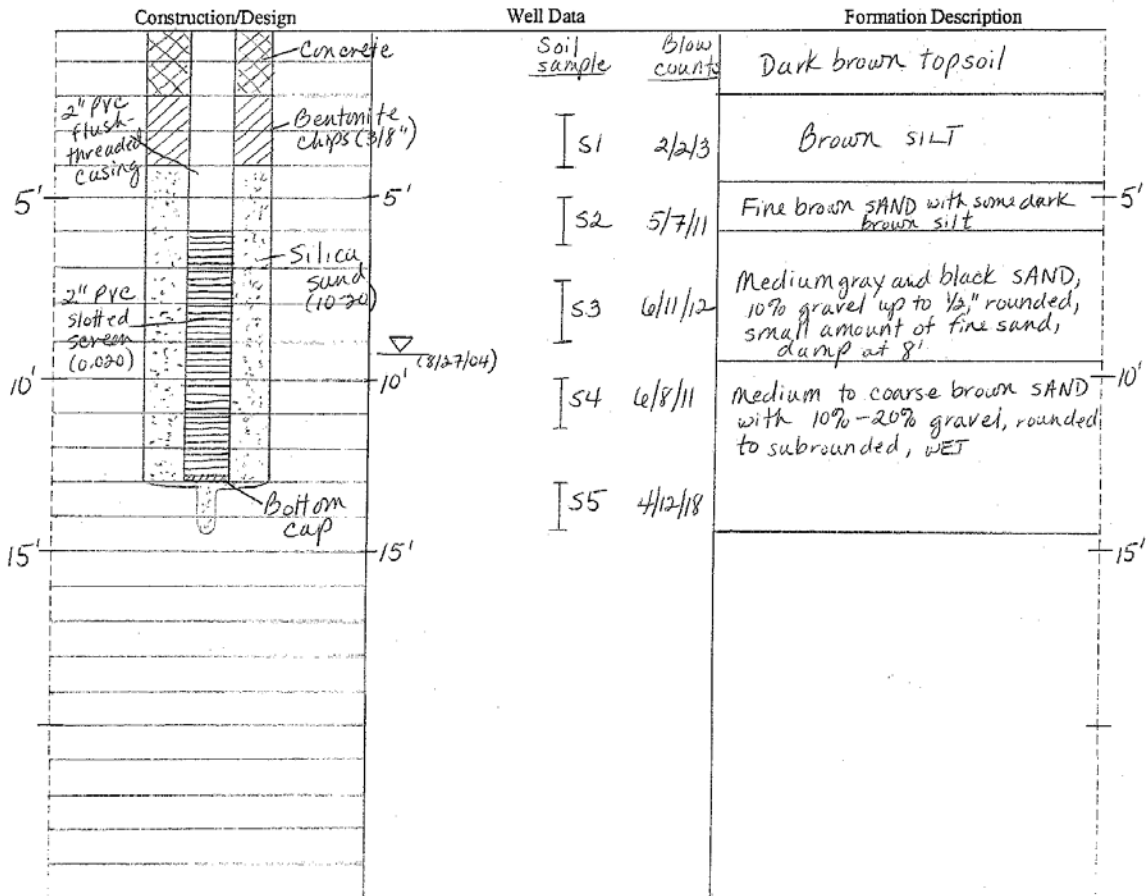 Construction/Design
Well Data
Formation Description
Concrete
2" PVC
flush-
threaded
casing
Bentonite
chips (3/8")
5'
5'
Silica
sand
(10-20)
2" PVC
slotted
screen
(0.020)
10'
10'
Bottom
cap
15'
15'
(8/27/04)
Soil
sample
Blow
counts
S1 2/2/3
S2 5/7/11
S3 6/11/12
S4 6/8/11
S5 4/12/18
Dark brown topsoil
Brown SILT
5'
Fine brown SAND with some dark
brown silt
Medium gray and black SAND,
10% gravel up to 1/2," rounded,
small amount of fine sand,
damp at 8'
10'
Medium to coarse brown SAND
with 10%-20% gravel, rounded
to subrounded, WET
15'